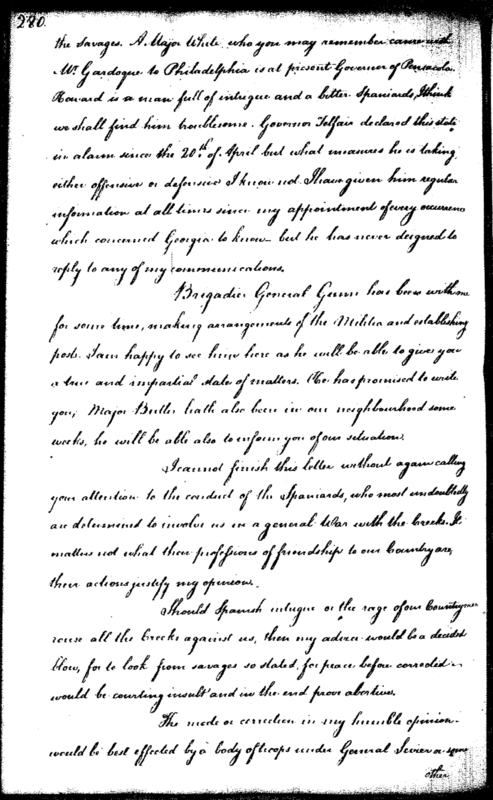 280.
the Savages. A Major White, who you may remember came with
Mr. Gardoque to Philadelphia is at present Governor of Pensacola.
Howard is a man full of intrigue and a bitter Spaniards, I think
we shall find him troublesome. Governor Telfair declared this state
in alarm since the 20th of April but what measures he is taking,
either offensive or defensive I know not. I have given him regular
information at all times since my appointment of every occurrence
which concerned Georgia to know — but he has never deigned to
reply to any of my communications.
Brigadier General Gunn has been with me
for some time, making arrangements of the Militia and establishing
post. I am happy to see him here as he will be able to give you
a true and impartial state of matters. He has promised to write
you; Major Butler hath also been in our neighbourhood some
weeks, he will be able also to inform you of our situation.
I cannot finish this letter without again calling
your attention to the conduct of the Spaniards, who most undoubtedly
are determined to involve us in a general War with the Creeks. It
matters not what their professions of friendship to our Country are,
their actions justify my opinion.
Should Spanish intrigue or the rage of our Countrymen
rouse all the Creeks against us, then my advice would be a decided
blow, for to look from savages so stated, for peace before corrected
would be courting insult and in the end prove abortive.
The mode of correction in my humble opinion
would be best effected by a body of troops under General Sevier or some
other